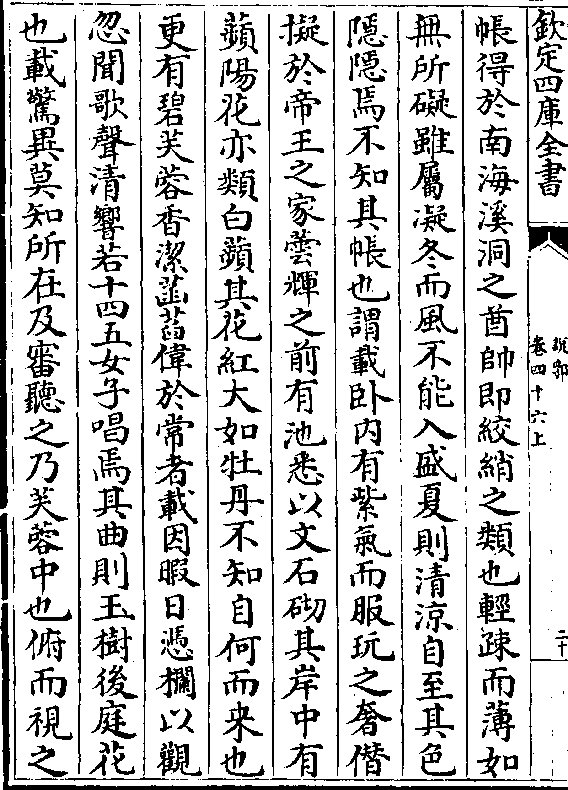 欽定四庫全書
說郛
卷四十六上
二十
帳得於南海溪洞之酋帥即絞綃之類也輕疎而薄如
無所礙雖屬凝冬而風不能入盛夏則清涼自至其色
隱隱焉不知其帳也謂載卧内有紫氣而服玩之奢僭
擬於帝王之家蕓輝之前有池悉以文石砌其岸中有
蘋陽花亦類白蘋其花紅大如牡丹不知自何而来也
更有碧芙蓉香潔菡萏偉於常者載因暇日憑欄以觀
忽聞歌聲清響若十四五女子唱焉其曲則玉樹後庭花
也載驚異莫知所在及審聽之乃芙蓉中也俯而視之